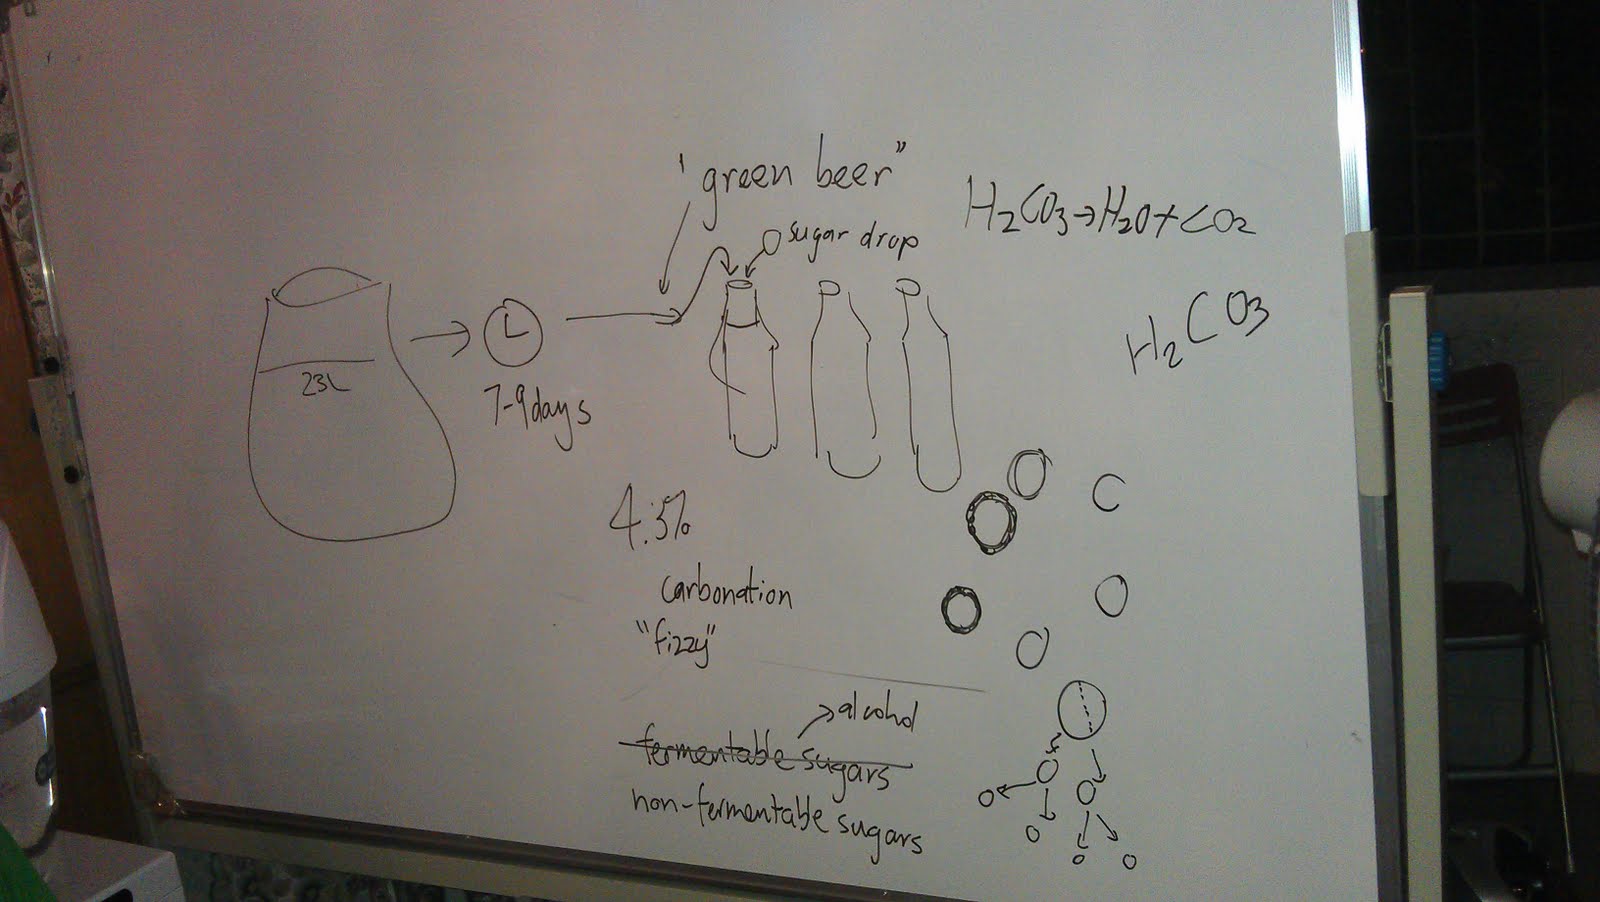 'green beer"
sugar drop
H2CO3→H2O+CO2
H2CO3
23L
7-9days
4.5%
carbonation
"fizzy"
→alcohol
fermentable sugars
non-fermentable sugars